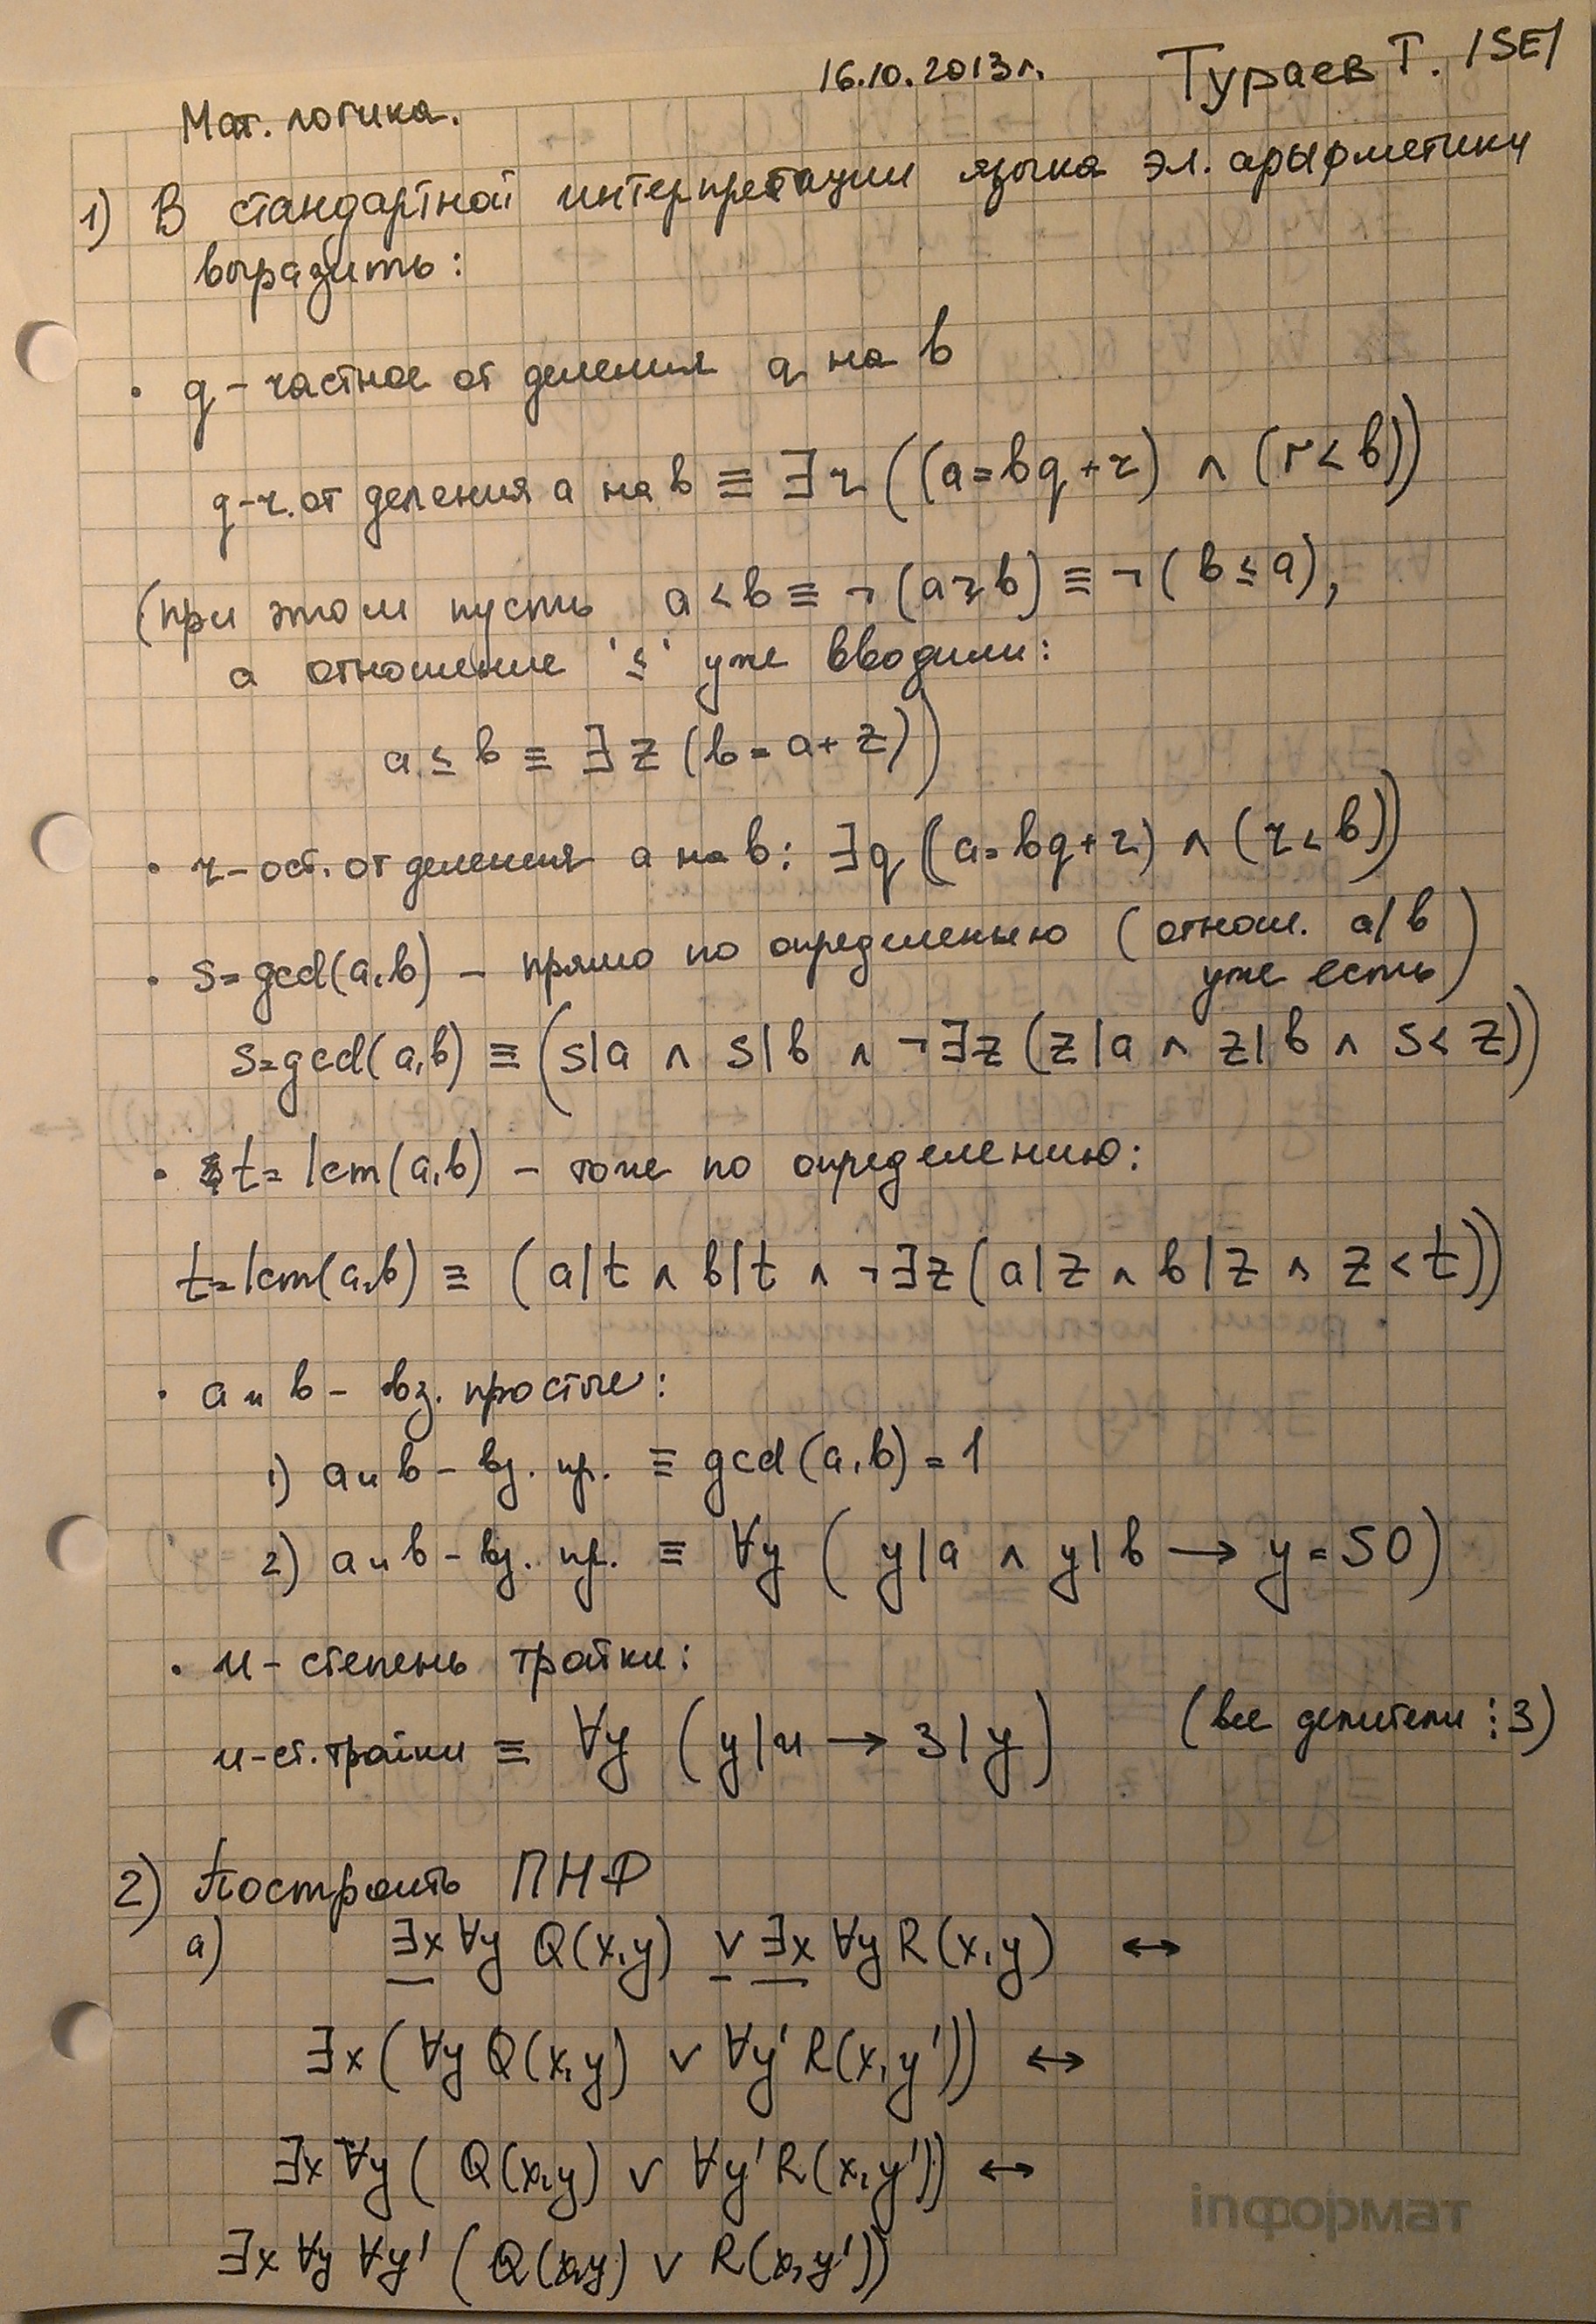 16.10.2013г. Тураев Т. 1SE1
Мат. логика.
1) В стандартной интерпретации языка эл. арыфметики
выразить:
· q – частное от деления q на b
q – ч. от деления a на b ≡ ∃r ((a = bq + r) ∧ (r < b))
(при этом пусть a < b ≡ ¬(a ≥ b) ≡ ¬(b ≤ a),
а отношение '≤' уже вводили:
a ≤ b ≡ ∃z (b = a + z))
· r – ост. от деления a на b: ∃q ((a = bq + r) ∧ (r < b))
· s = gcd(a, b) – прямо по определению (отнош. a|b
уже есть)
s = gcd(a, b) ≡ (s|a ∧ s|b ∧ ¬∃z (z|a ∧ z|b ∧ s < z))
· t = lcm(a, b) – тоже по определению:
t = lcm(a, b) ≡ (a|t ∧ b|t ∧ ¬∃z (a|z ∧ b|z ∧ z < t))
· a и b – вз. простые:
1) a и b – вз. пр. ≡ gcd(a, b) = 1
2) a и b – вз. пр. ≡ ∀y (y|a ∧ y|b → y = S0)
· n – степень тройки:
n – ст. тройки ≡ ∀y (y|n → 3|y) (все делители ⋮ 3)
2) Построить ПНФ
а) ∃x ∀y Q(x, y) ∨ ∃x ∀y R(x, y) ↔
∃x (∀y Q(x, y) ∨ ∀y' R(x, y')) ↔
∃x ∀y (Q(x, y) ∨ ∀y' R(x, y')) ↔
∃x ∀y ∀y' (Q(x, y) ∨ R(x, y'))
inформат